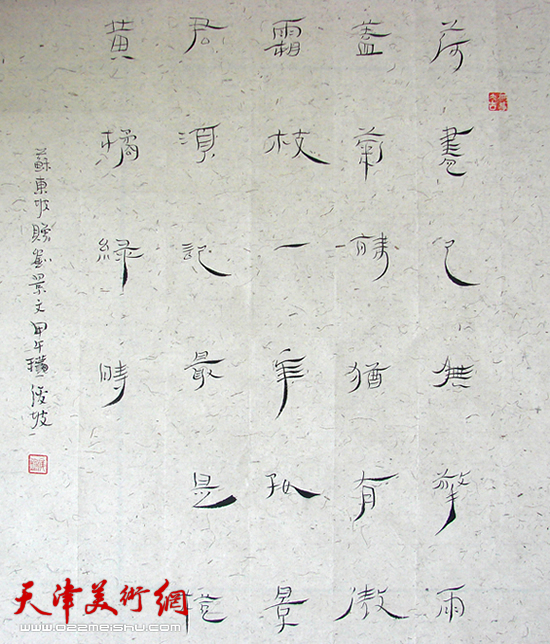 荷盡已無擎雨
蓋菊殘猶有傲
霜枝一年好景
君須記最是橙
黃橘綠時
蘇東坡贈劉景文甲午
天津美術網
www.022meishu.com